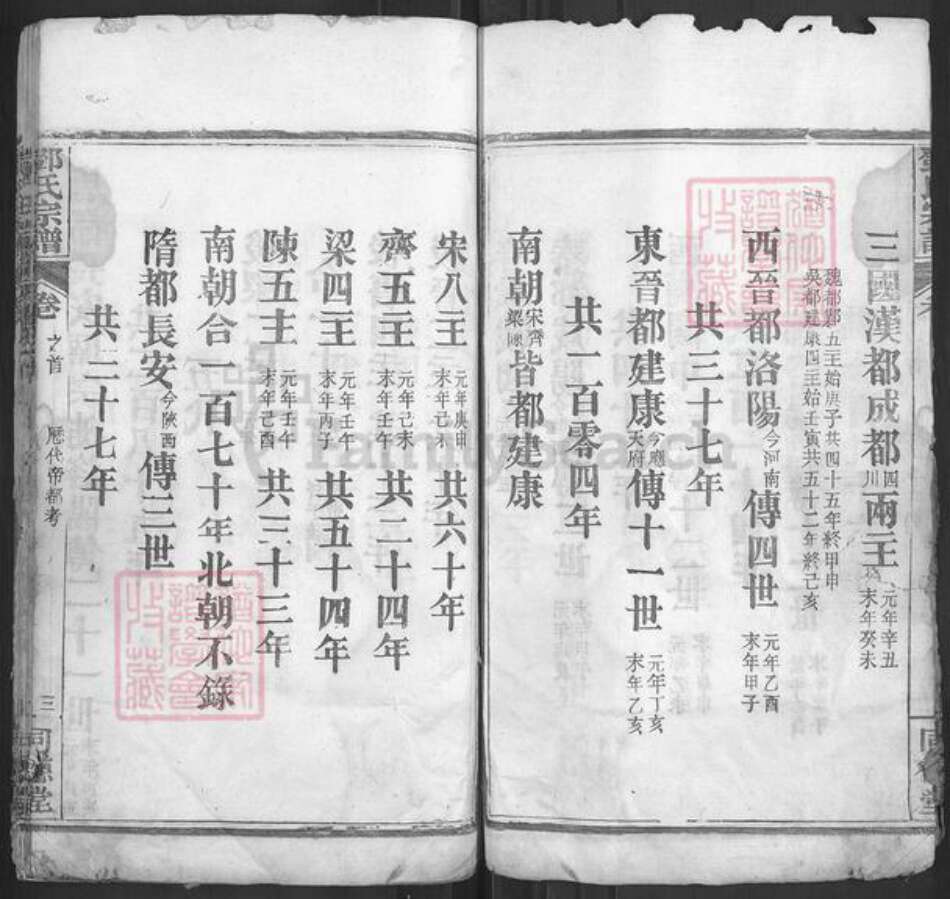 三國漢都成都四川兩主元年辛丑末年癸未
魏都鄴五主始庚子共四十五年終甲申
吳都建康四主始壬寅共五十二年終己亥
西晉都洛陽今河南傳四世元年乙酉末年甲子
共三十七年
東晉都建康今應天府傳十一世元年丁亥末年乙亥
共一百零四年
南朝宋齊梁陳皆都建康
宋八主元年庚申末年己未共六十年
齊五主元年己未末年壬午共二十四年
梁四主元年壬午末年丙子共五十四年
陳五主元年壬午末年己酉共三十三年
南朝合一百七十年北朝不錄
隋都長安今陝西傳三世
共三十七年
鄧氏宗譜 卷之首 歷代帝都考 三 同德堂
FamilySearch